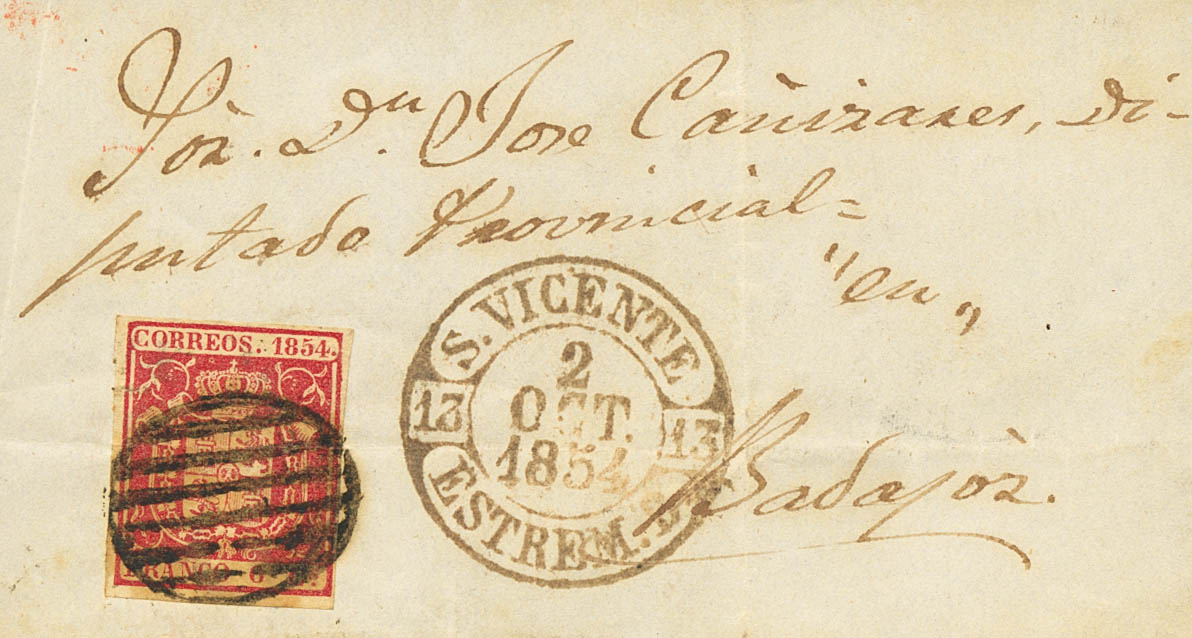 Sör. D.ⁿ Jose Cañizares, di-
putado Provincial=
"en„
Badajòz.
CORREOS. 1854.
FRANCO. 6 
S. VICENTE
13
2
OCT.
1854
13
ESTREM.